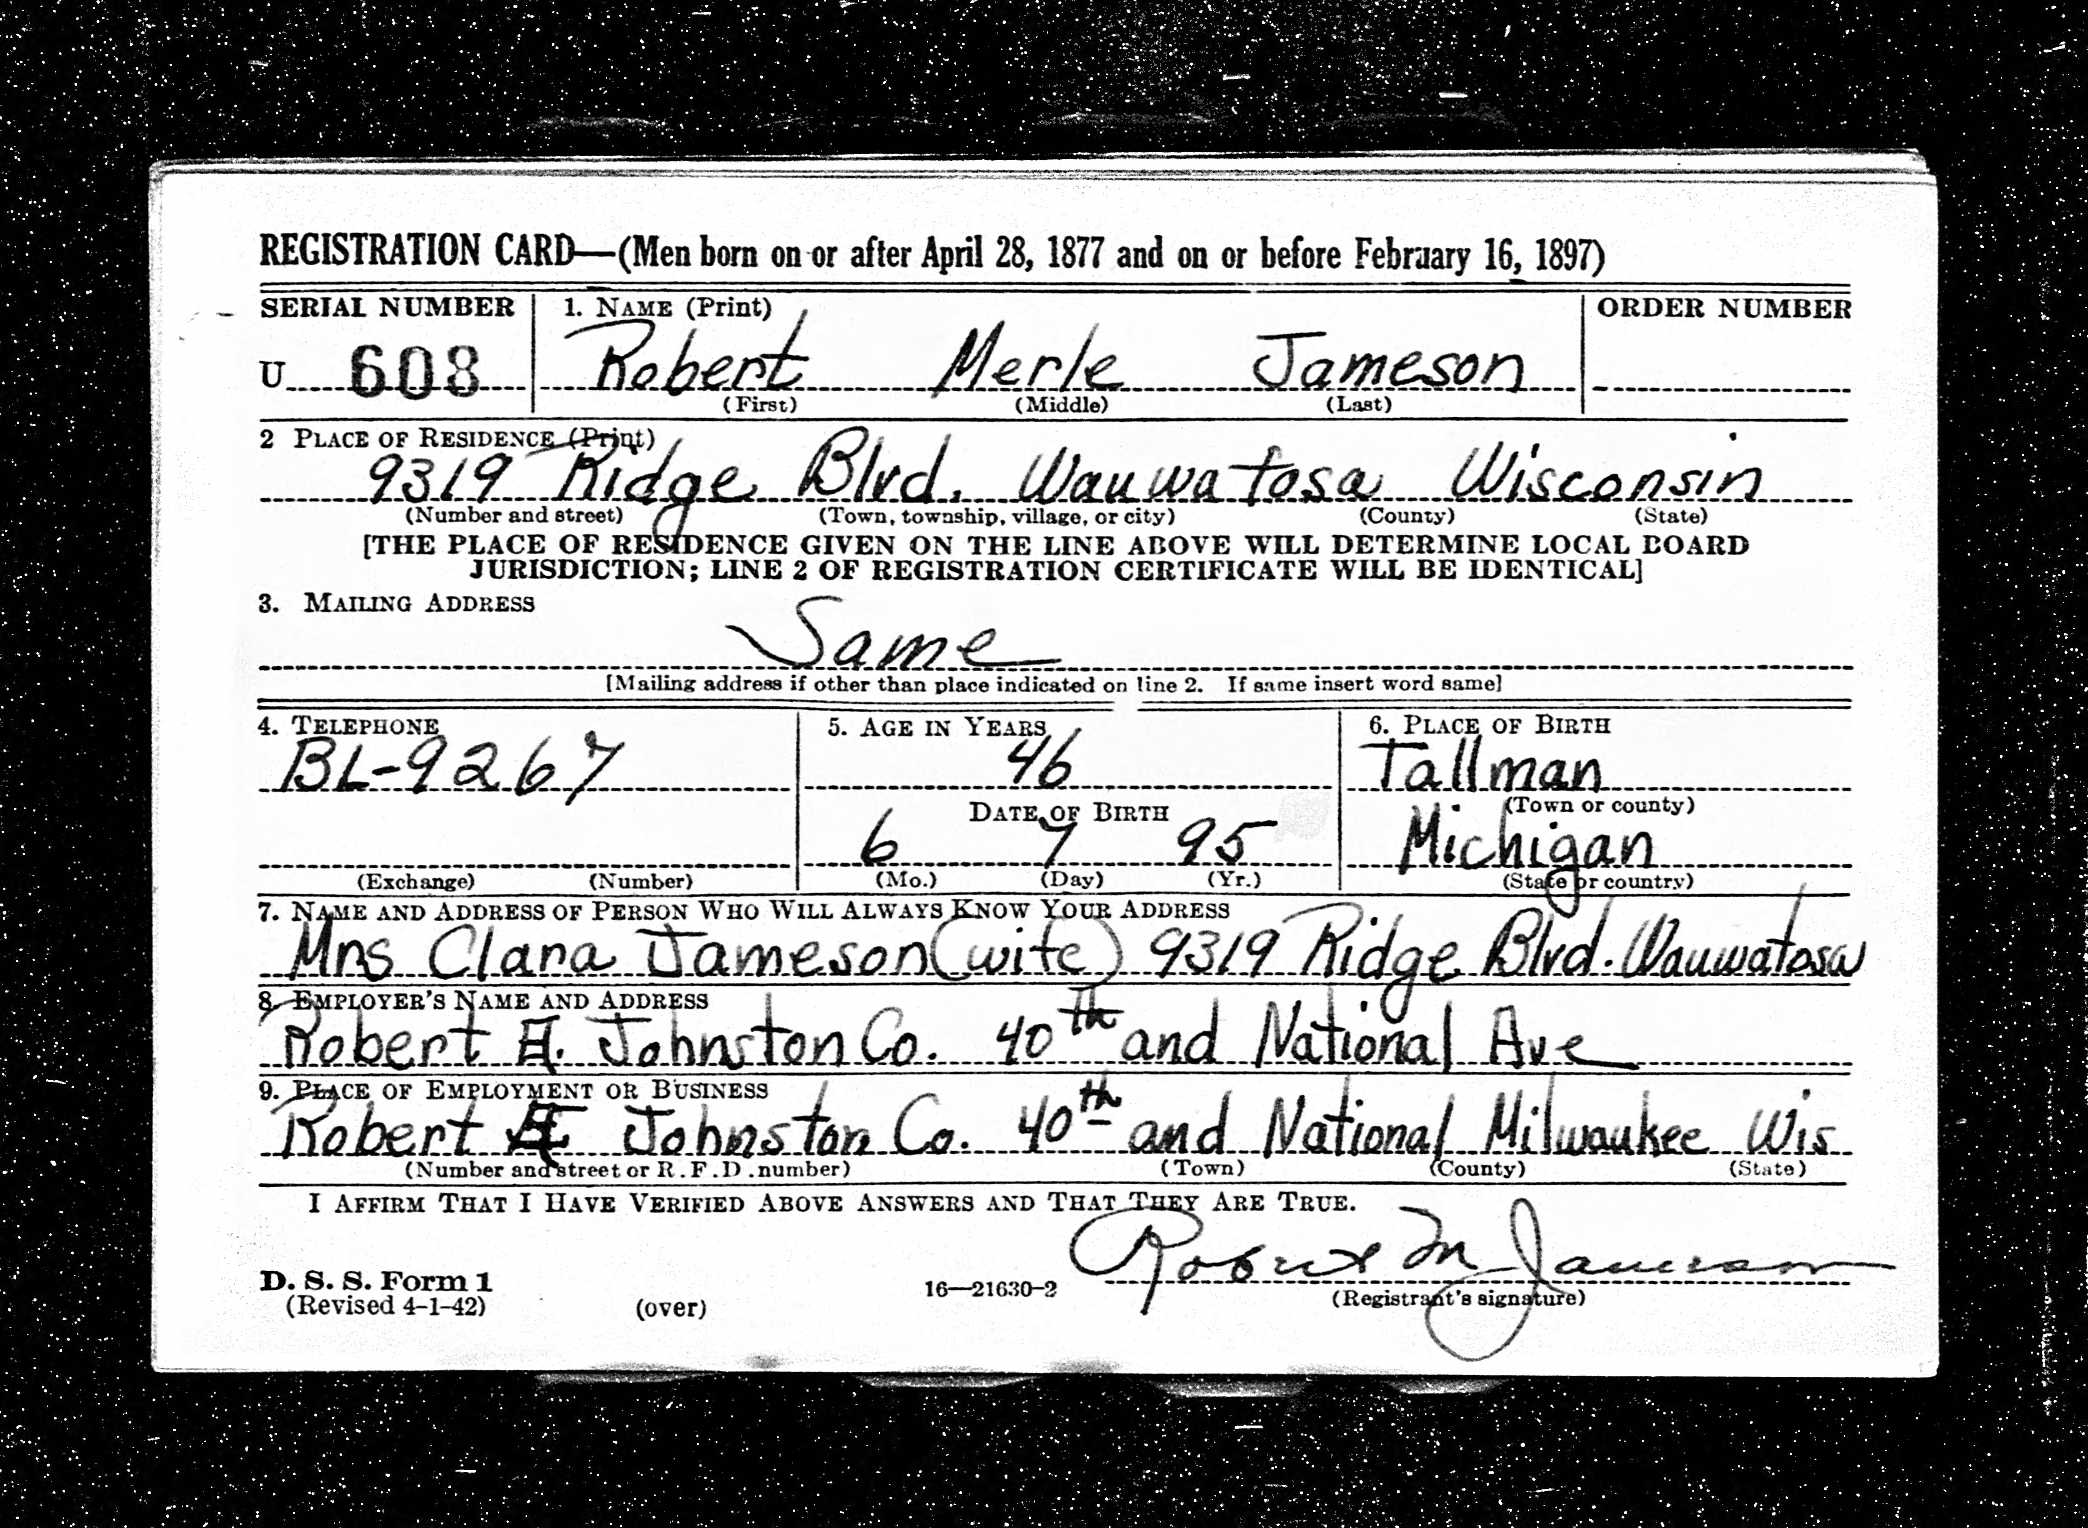 REGISTRATION CARD—(Men born on or after April 28, 1877 and on or before February 16, 1897)
SERIAL NUMBER 1. NAME (Print) ORDER NUMBER
U 608 Robert Merle Jameson
(First) (Middle) (Last)
2 PLACE OF RESIDENCE (Print)
9319 Ridge Blvd. Wauwatosa Wisconsin
(Number and street) (Town, township, village, or city) (County) (State)
[THE PLACE OF RESIDENCE GIVEN ON THE LINE ABOVE WILL DETERMINE LOCAL BOARD
JURISDICTION; LINE 2 OF REGISTRATION CERTIFICATE WILL BE IDENTICAL]
3. MAILING ADDRESS
Same
[Mailing address if other than place indicated on line 2. If same insert word same]
4. TELEPHONE 5. AGE IN YEARS 6. PLACE OF BIRTH
BL-9267 46 Tallman
DATE OF BIRTH (Town or county)
6 7 95 Michigan
(Exchange) (Number) (Mo.) (Day) (Yr.) (State or country)
7. NAME AND ADDRESS OF PERSON WHO WILL ALWAYS KNOW YOUR ADDRESS
Mrs Clara Jameson (wife) 9319 Ridge Blvd. Wauwatosa
8. EMPLOYER'S NAME AND ADDRESS
Robert Johnston Co. 40th and National Ave
9. PLACE OF EMPLOYMENT OR BUSINESS
Robert Johnston Co. 40th and National Milwaukee Wis
(Number and street or R. F. D. number) (Town) (County) (State)
I AFFIRM THAT I HAVE VERIFIED ABOVE ANSWERS AND THAT THEY ARE TRUE.
Robert M Jameson
D. S. S. Form 1
(Revised 4-1-42) (over) 16—21630-2 (Registrant's signature)